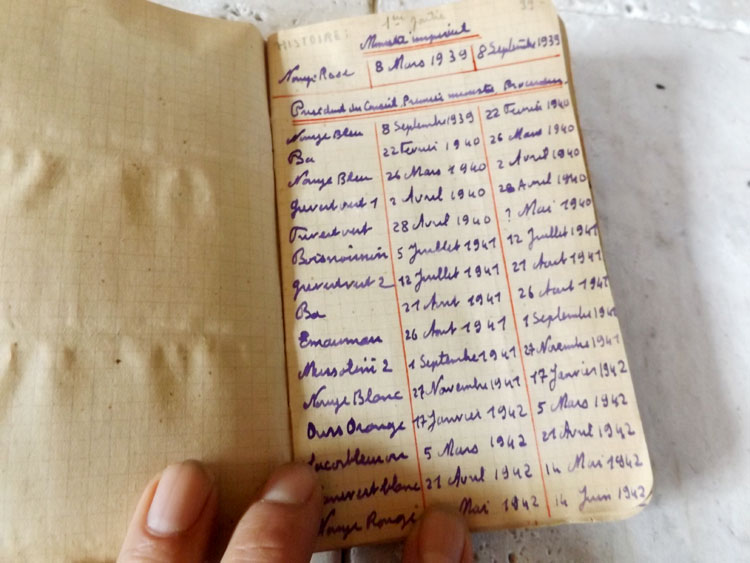 HISTOIRE: 1ère Partie 39
Ministre impérial
Nouye Rose 8 Mars 1939 8 Septembre 1939
Président du Conseil. Premier ministre.
Nouye Bleu 8 Septembre 1939 22 Février 1940
Ba 22 Février 1940 26 Mars 1940
Nouye Bleu 26 Mars 1940 2 Avril 1940
1 2 Avril 1940 28 Avril 1940
28 Avril 1940 ? Mai 1940
5 Juillet 1941 12 Juillet 1941
2 12 Juillet 1941 21 Aout 1941
Ba 21 Aout 1941 26 Aout 1941
26 Aout 1941 1 Septembre 1941
Mussolini 2 1 Septembre 1941 27 Novembre 1941
Nouye Blanc 27 Novembre 1941 17 Janvier 1942
Ours Orange 17 Janvier 1942 5 Mars 1942
5 Mars 1942 21 Avril 1942
21 Avril 1942 14 Mai 1942
Nouye Rouge Mai 1942 14 Juin 1942